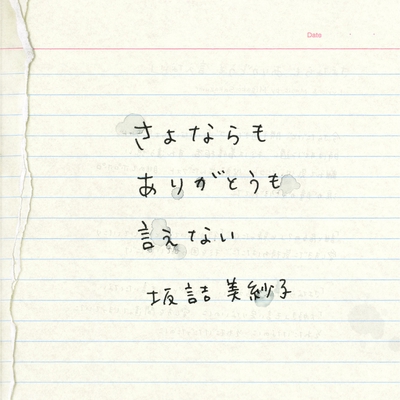 Date
さよならも
ありがとうも
言えない
坂詰美紗子